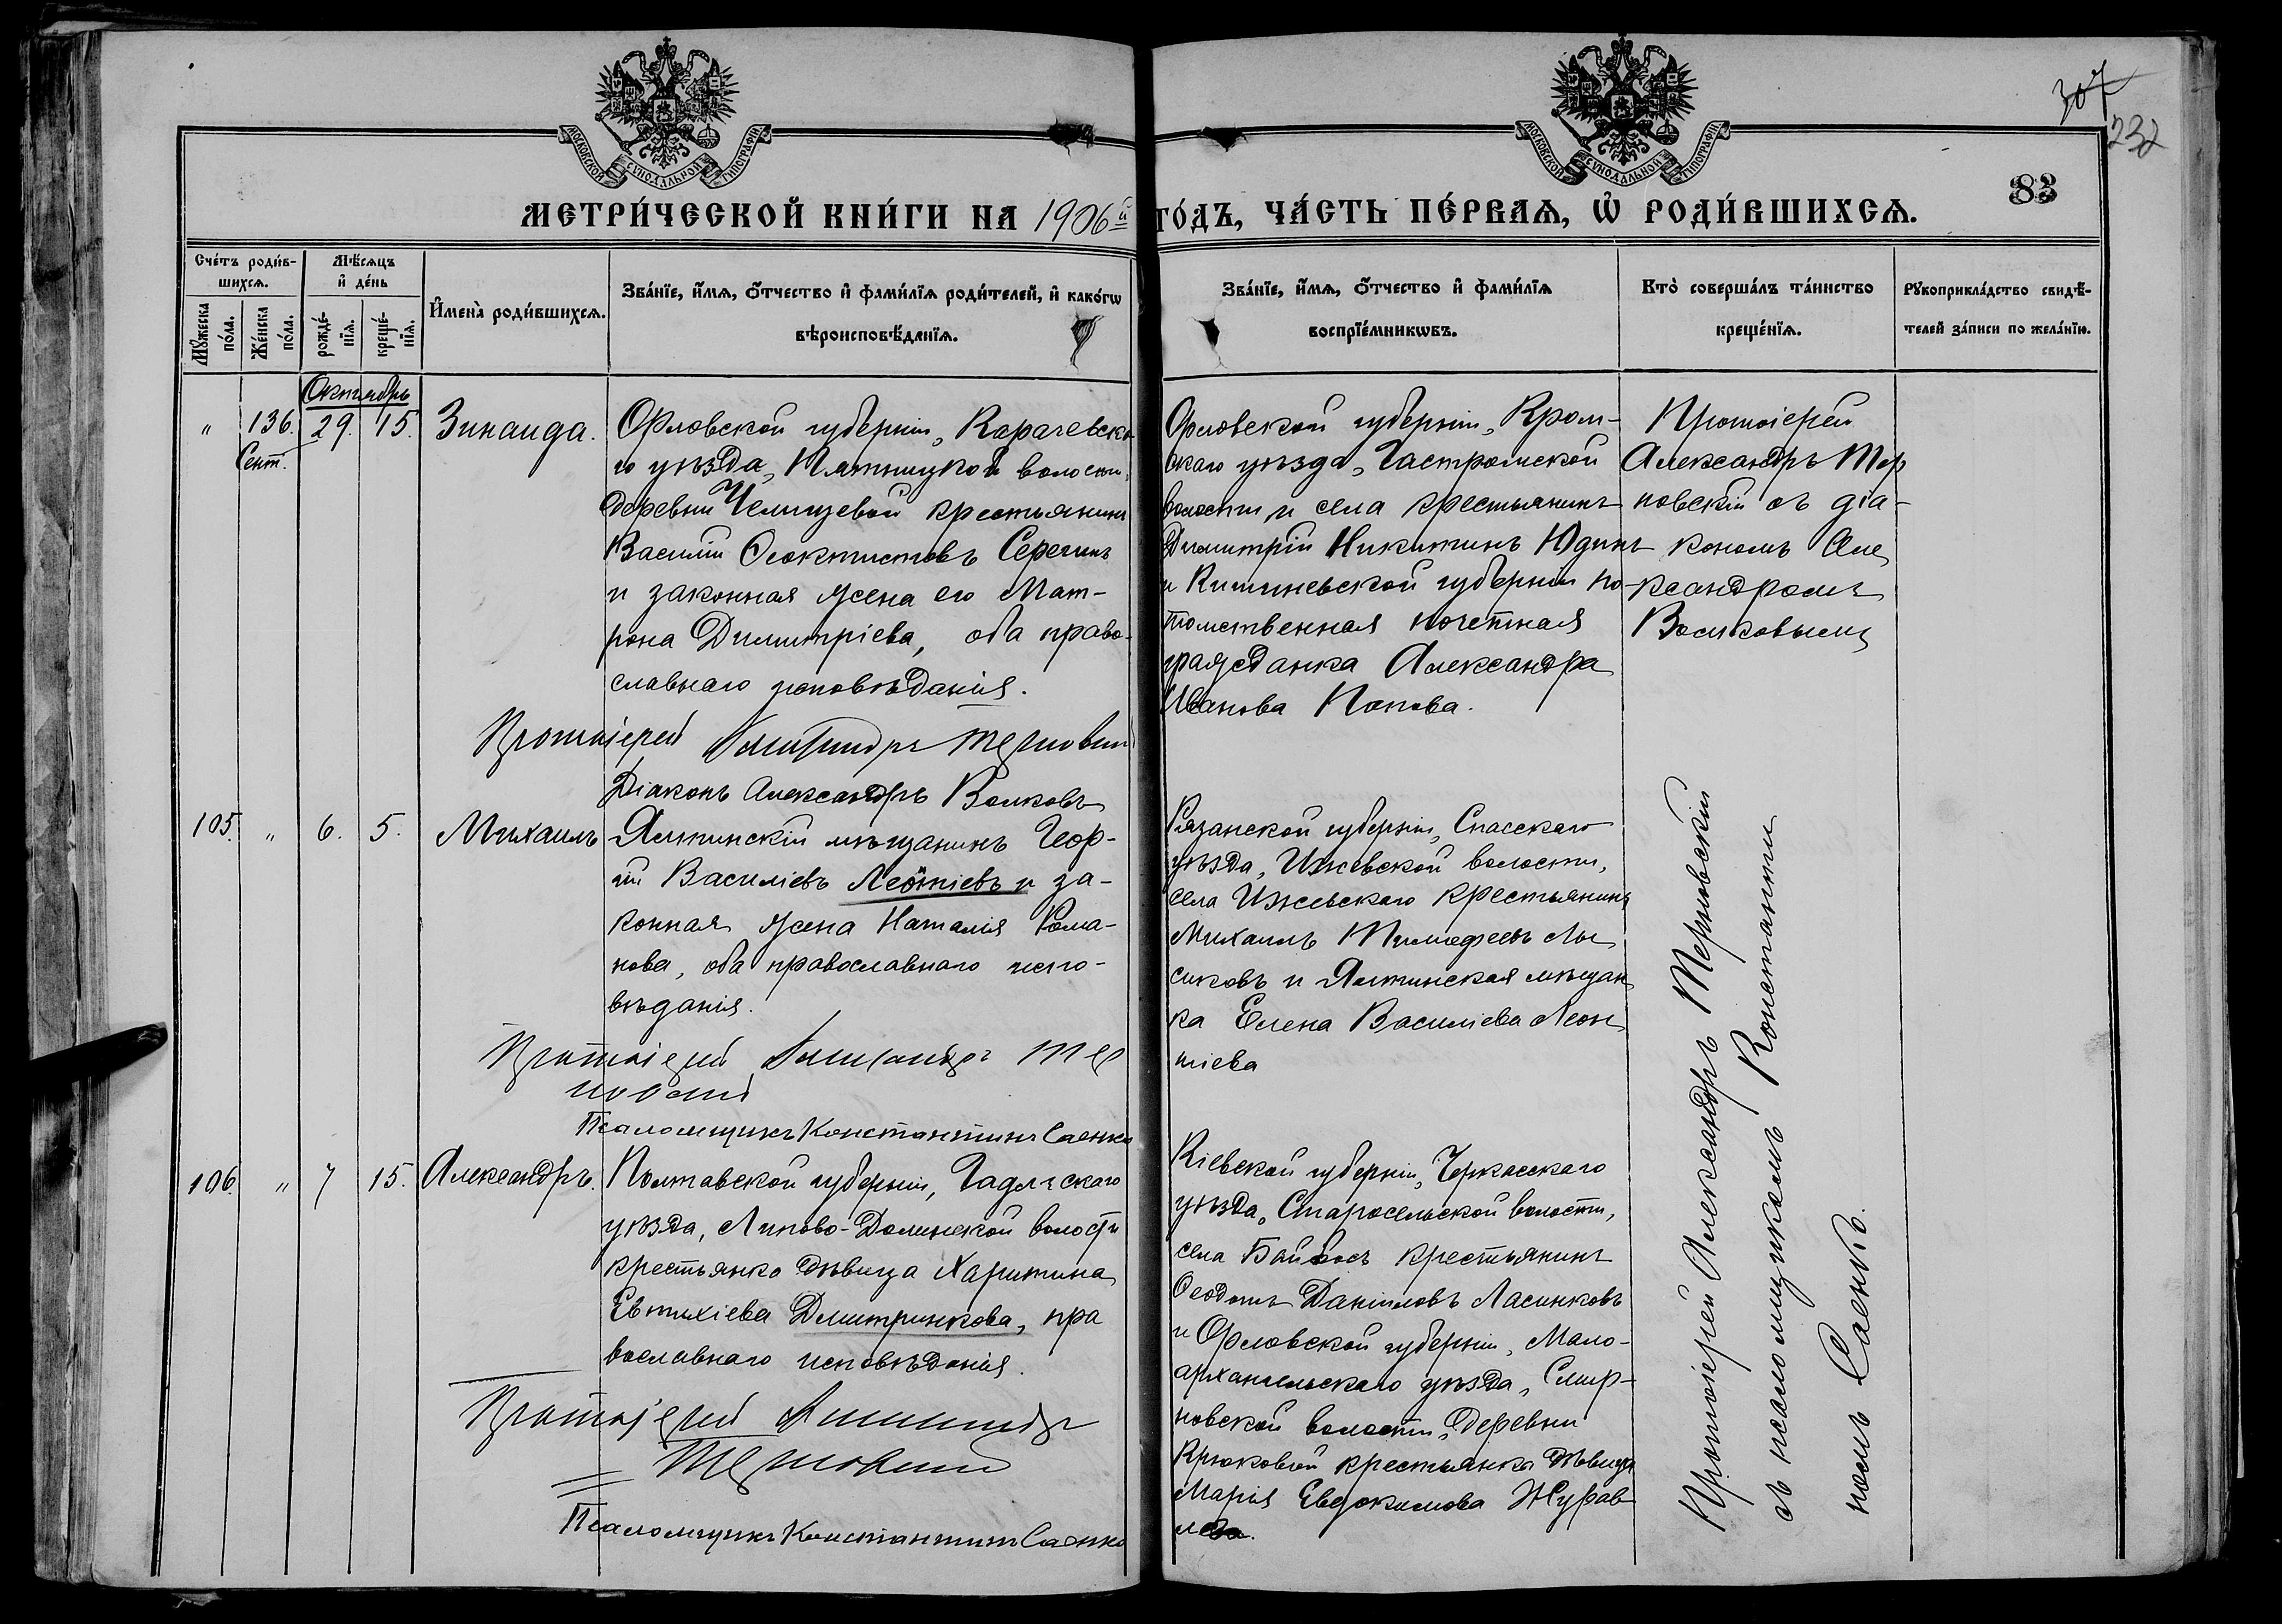 МОСКОВСКОЙ СѴНОДАЛЬНОЙ ТИПОГРАФІИ
МОСКОВСКОЙ СѴНОДАЛЬНОЙ ТИПОГРАФІИ
307
232
83
МЕТРИ́ЧЕСКОЙ КНИ́ГИ НА 1906й
ГО́ДЪ, ЧА́СТЬ ПЕ́РВАЯ, Ѡ҆ РОДИ́ВШИХСЯ.
Сче́тъ роди́в-
шихся.
Мꙋ́жеска по́ла.
Же́нска по́ла.
Мѣ́сяцъ
и҆ де́нь
рожде́-
нїя.
креще́-
нїя.
И҆мена̀ роди́вшихся.
Зва́нїе, и҆́мя, ѻ҆́тчество и҆ фами́лїя роди́телей, и҆ како́гѡ
вѣроисповѣ́данїя.
Зва́нїе, и҆́мя, ѻ҆́тчество и҆ фами́лїя
воспрїе́мникѡвъ.
Кто̀ соверша́лъ та́инство
креще́нїя.
Рꙋкоприкла́дство свидѣ́-
телей за́писи по жела́нїю.
Октябрь
" 136. 29. 15. Зинаида.
Сент.
Орловской губерніи, Карачевска-
го уѣзда, Пятницкой волости,
деревни Челищевой крестьянинъ
Василій Ѳеоктистовъ Серегинъ
и законная жена его Мат-
рона Димитріева, оба право-
славнаго исповѣданія.
Протоіерей Александръ Терновскій
Діаконъ Александръ Волковъ
Орловской губерніи, Кром-
скаго уѣзда, Гастромской
волости и села крестьянинъ
Димитрій Никитинъ Юдинъ
и Кишиневской губерніи по-
томственная почетная
гражданка Александра
Иванова Попова.
Протоіерей
Александръ Тер
новскій съ діа-
кономъ Але
ксандромъ
Волковымъ
105. " 6. 5. Михаилъ
Ялтинскій мѣщанинъ Геор-
гій Василіевъ Леонтіевъ и за-
конная жена Наталія Рома-
нова, оба православнаго испо-
вѣданія.
Протоіерей Александръ Тер
новскій
Псаломщикъ Константинъ Саенко
Рязанской губерніи, Спасскаго
уѣзда, Ижевской волости,
села Ижевскаго крестьянинъ
Михаилъ Тимофеевъ Лы
сиковъ и Ялтинская мѣщан
ка Елена Василіева Леон
тіева
106. " 7 15. Александръ.
Полтавской губерніи, Гадячскаго
уѣзда, Липово-Долинской волости
крестьянка дѣвица Харитина
Евтихіева Дмитринкова, пра
вославнаго исповѣданія.
Протоіерей Александръ
Терновскій
Псаломщикъ Константинъ Саенко
Кіевской губерніи, Черкасскаго
уѣзда, Старосельской волости,
села Байбосъ крестьянинъ
Ѳеодотъ Даніиловъ Ласинковъ
и Орловской губерніи, Мало-
архангельскаго уѣзда, Смир-
новской волости, деревни
Крюковой крестьянка дѣвица
Марія Евдокимова Журав
лева.
Протоіерей Александръ Терновскій
съ псаломщикомъ Константи
номъ Саенко.